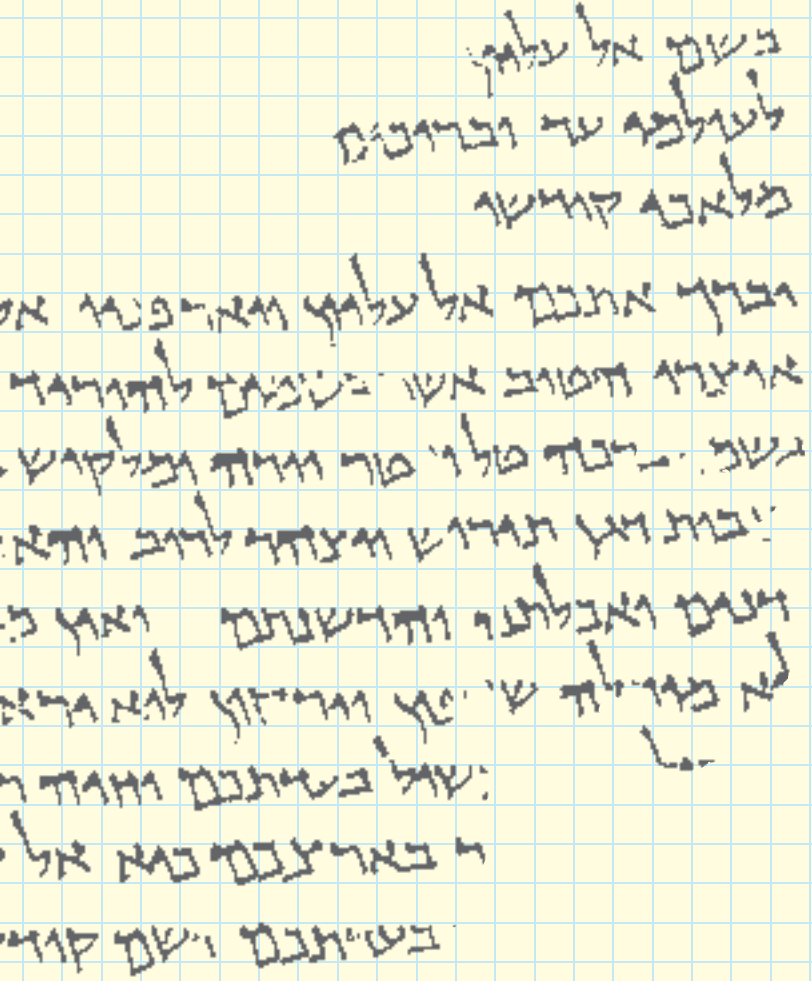 בשם אל עליון
לעולמי עד וברוכים
מלאכי קודשו
יברך אתכם אל עליון ויאר פניו
אוצרו הטוב אשר בשמים להוריד
גשמי ברכה טל ומטר יורה ומלקוש
נובות דגן תירוש ויצהר לרוב והא
דנים ואכלתם והדשנתם ואין
לא מוחלה שדפון וירקון לוא ירא
שול בעדתכם וחיה
ר בארצכם כיא אל
בעדתכם ושם קוד